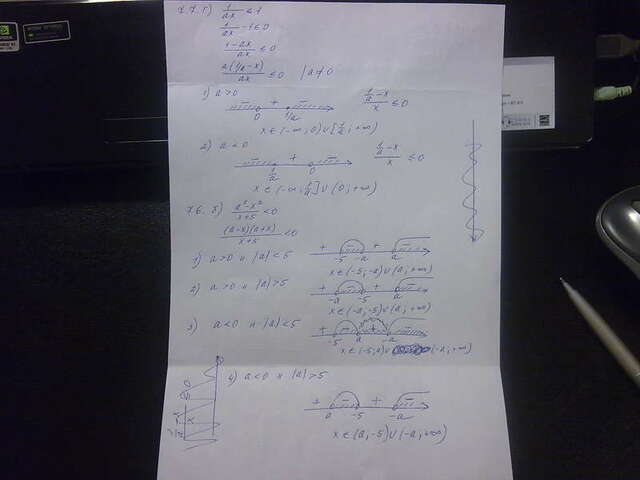 7.7. г) 1/ax ≤ 1
1/ax - 1 ≤ 0
1-ax/ax ≤ 0
a(1/a - x)/ax ≤ 0 | a ≠ 0
1) a > 0
+ 0 1/a
1/a - x/x ≤ 0
x ∈ (-∞; 0) ∪ [1/a; +∞)
2) a < 0
+ 1/a 0
1/a - x/x ≤ 0
x ∈ (-∞; 1/a] ∪ (0; +∞)
7.6. б) a²-x²/x+5 < 0
(a-x)(a+x)/x+5 < 0
1) a>0 и |a|<5
+ - + -
-5 -a a
x ∈ (-5; -a) ∪ (a; +∞)
2) a>0 и |a|>5
+ - + -
-a -5 a
x ∈ (-a; -5) ∪ (a; +∞)
3) a<0 и |a|<5
+ - + -
-5 a -a
x ∈ (-5; a) ∪ (-a; +∞)
4) a<0 и |a|>5
+ - + -
a -5 -a
x ∈ (a; -5) ∪ (-a; +∞)